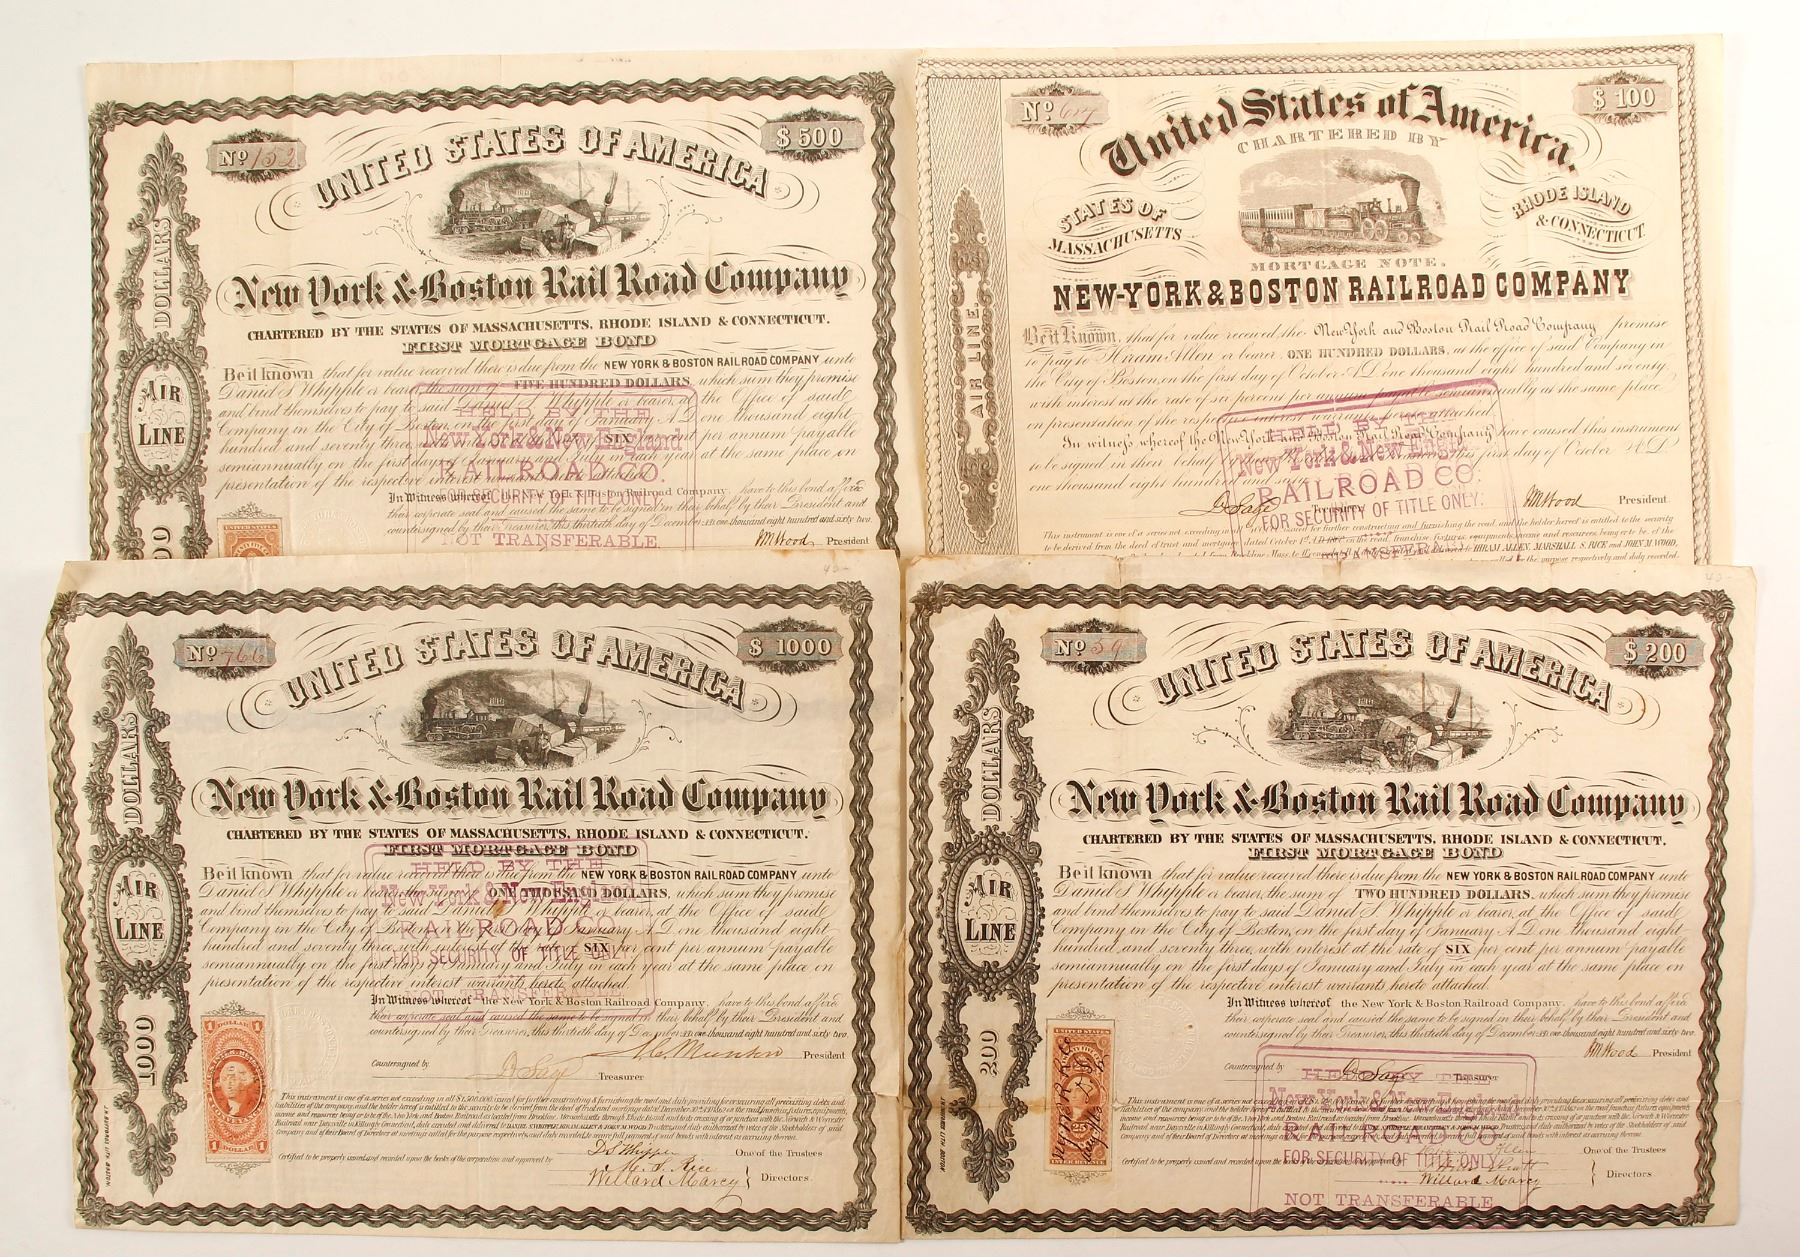 No 132
$500
UNITED STATES OF AMERICA
DOLLARS
AIR
LINE
New York & Boston Rail Road Company
CHARTERED BY THE STATES OF MASSACHUSETTS, RHODE ISLAND & CONNECTICUT.
FIRST MORTGAGE BOND
Be it known that for value received there is due from the NEW YORK & BOSTON RAILROAD COMPANY unto
Daniel S Whipple or bearer the sum of FIVE HUNDRED DOLLARS, which sum they promise
and bind themselves to pay to said Daniel S. Whipple or bearer, at the Office of said
Company in the City of Boston, on the first day of January A.D. one thousand eight
hundred and seventy three, SIX per cent per annum payable
semiannually on the first days of January and July in each year at the same place on
presentation of the respective interest warrants hereto attached.
In Witness whereof the New York & Boston Railroad Company, have to this bond affixed
their corporate seal and caused the same to be signed in their behalf by their President and
countersigned by their Treasurer, this thirtieth day of December A.D. one thousand eight hundred and sixty two.
J M Wood President
HELD BY THE
New York & New England
RAILROAD CO.
FOR SECURITY OF TITLE ONLY.
NOT TRANSFERABLE.
No 617
$100
United States of America.
CHARTERED BY
STATES OF
MASSACHUSETTS
RHODE ISLAND
& CONNECTICUT.
MORTGAGE NOTE.
NEW-YORK & BOSTON RAILROAD COMPANY
AIR LINE.
Be it Known, that for value received the New York and Boston Rail Road Company promise
to pay to Hiram Allen or bearer, ONE HUNDRED DOLLARS, at the office of said Company in
the City of Boston, on the first day of October A.D. one thousand eight hundred and seventy
with interest at the rate of six percent per annum payable semiannually at the same place,
on presentation of the respective interest warrants hereto attached.
In witness whereof the New York and Boston Rail Road Company have caused this instrument
to be signed in their behalf by this first day of October A.D.
one thousand eight hundred and
D Sage Treasurer. J M Wood President.
This instrument is one of a series not exceeding issued for further constructing and furnishing the road, and the holder hereof is entitled to the security
to be derived from the deed of trust and mortgage dated October 1st,
HIRAM ALLEN, MARSHALL S. RICE and JOHN M. WOOD,
HELD BY THE
New York & New Engl
RAILROAD CO.
FOR SECURITY OF TITLE ONLY.
No 766
$1000
UNITED STATES OF AMERICA
DOLLARS
AIR
LINE
1000
New York & Boston Rail Road Company
CHARTERED BY THE STATES OF MASSACHUSETTS, RHODE ISLAND & CONNECTICUT.
FIRST MORTGAGE BOND
Be it known that for value received there is due from the NEW YORK & BOSTON RAILROAD COMPANY unto
Daniel S Whipple or bearer, the sum of ONE THOUSAND DOLLARS, which sum they promise
and bind themselves to pay to said Daniel S Whipple or bearer, at the Office of said
Company in the City of Boston, on the first day of January A.D. one thousand eight
hundred and seventy three, with interest at the rate SIX per cent per annum payable
semiannually on the first days of January and July in each year at the same place on
presentation of the respective interest warrants hereto attached.
In Witness whereof the New York & Boston Railroad Company, have to this bond affixed
their corporate seal and caused the same to be signed in their behalf by their President and
countersigned by their Treasurer, this thirtieth day of December A.D. one thousand eight hundred and sixty two.
President
Countersigned by D Sage Treasurer
Certified to be properly issued and recorded upon the books of the corporation and approved by
D S Whipple One of the Trustees
M. S. Rice
Willard Marcy } Directors.
HELD BY THE
New York & New England
RAILROAD CO.
FOR SECURITY OF TITLE ONLY.
NOT TRANSFERABLE
1 DOLLAR 1
No 59
$200
UNITED STATES OF AMERICA
DOLLARS
AIR
LINE
200
New York & Boston Rail Road Company
CHARTERED BY THE STATES OF MASSACHUSETTS, RHODE ISLAND & CONNECTICUT.
FIRST MORTGAGE BOND
Be it known that for value received there is due from the NEW YORK & BOSTON RAILROAD COMPANY unto
Daniel S Whipple or bearer, the sum of TWO HUNDRED DOLLARS, which sum they promise
and bind themselves to pay to said Daniel S. Whipple or bearer, at the Office of said
Company in the City of Boston, on the first day of January A.D. one thousand eight
hundred and seventy three, with interest at the rate SIX per cent per annum payable
semiannually on the first days of January and July in each year at the same place on
presentation of the respective interest warrants hereto attached.
In Witness whereof the New York & Boston Railroad Company, have to this bond affixed
their corporate seal and caused the same to be signed in their behalf by their President and
countersigned by their Treasurer, this thirtieth day of December A.D. one thousand eight hundred and sixty two.
J M Wood President
Countersigned by D Sage Treasurer
Certified to be properly issued and recorded upon the books of the corporation and approved
One of the Trustees
Willard Marcy } Directors.
HELD BY THE
New York & New England
RAILROAD CO.
FOR SECURITY OF TITLE ONLY.
NOT TRANSFERABLE
UNITED STATES
25